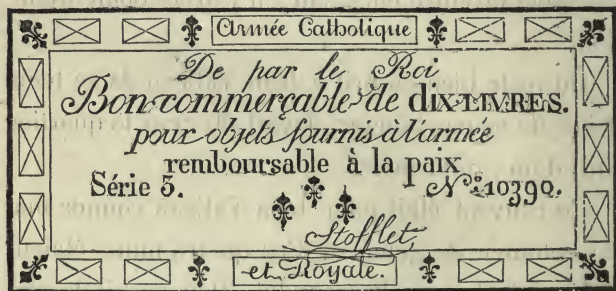 Armée Catholique
De par le Roi
Bon commerçable de DIX-LIVRES.
pour objets fournis à l'armée
remboursable à la paix
Série 3. N.º 10390.
Stofflet
et Royale.